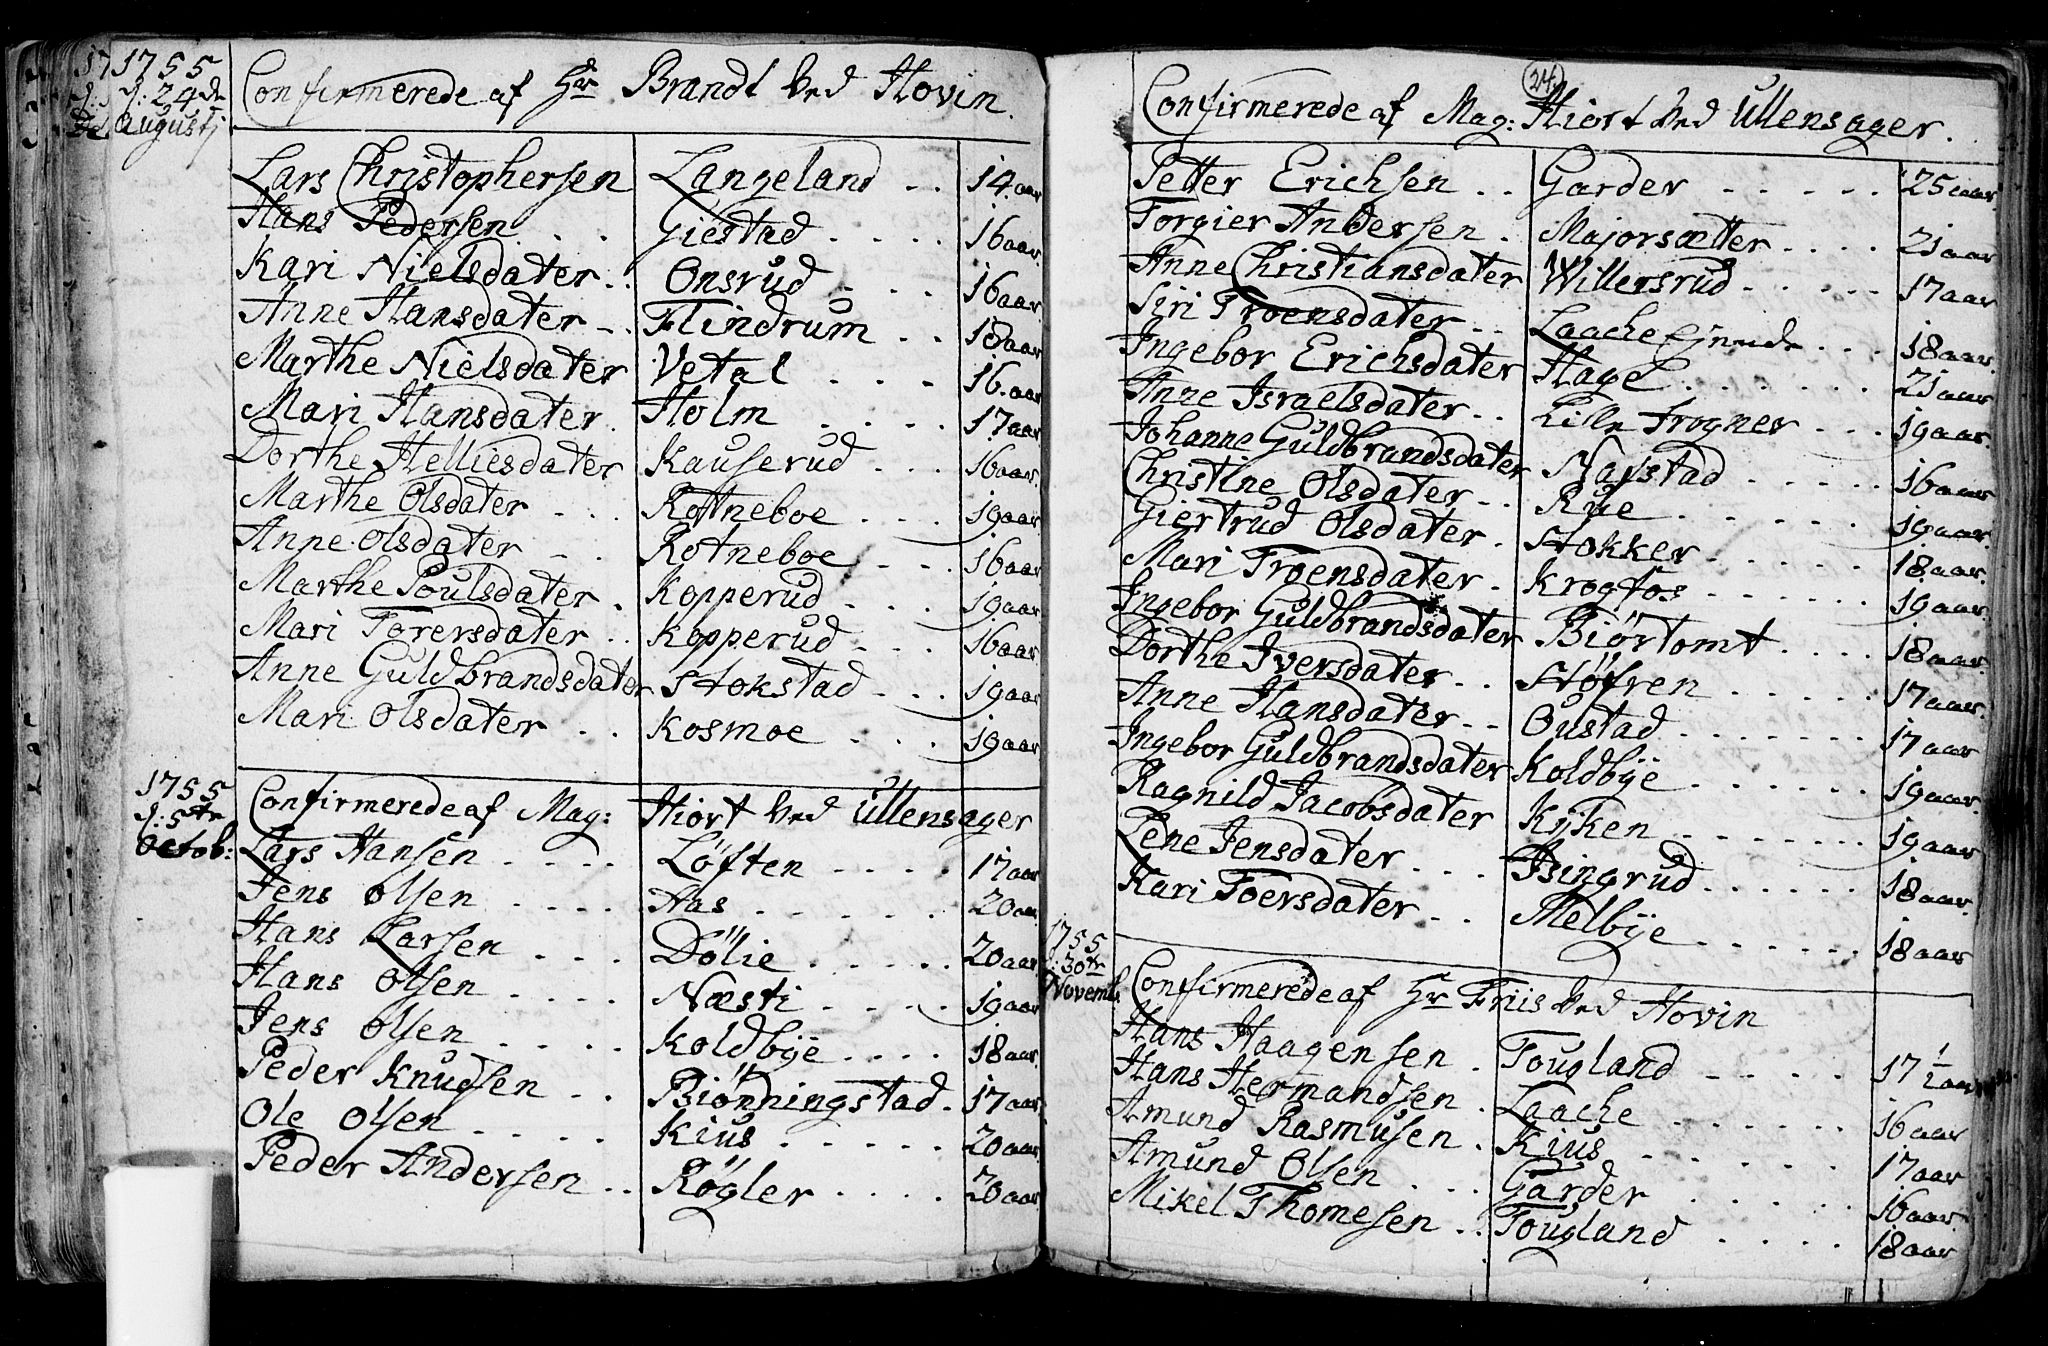 1755
d: 24de
Augustj
Confirmerede af Hr Brandt ved Hovin.
Lars Christophersen Langeland . . 14 aar
Hans Pedersen . . . Giestad . . . . 16 aar.
Kari Nielsdater . . Onsrud . . . . 16 aar
Anne Hansdater . . Flindrum . . 18 aar
Marthe Nielsdater Vetal . . . . 16. aar
Mari Hansdater. Holm . . . . . 17 aar
Dorthe Helliesdater Kauserud . . . 16 aar.
Marthe Olsdater . . . Rotneboe . . . . 19 aar
Anne Olsdater . . . Rotneboe . . . . 16 aar
Marthe Poulsdater . Kopperud . . . . 19 aar
Mari Torersdater . . Kopperud . . . 16 aar
Anne Guldbrandsdater Stokstad . . . 19 aar
Mari Olsdater . . Kosmoe . . . 19 aar
1755
d: 5te
Octob:
Confirmerede af Mag: Hiort ved Ullensager
Lars Hansen . . . . Løften . . . . . 17 aar
Jens Olsen . . . . . Aas . . . . . . 20 aar
Hans Larsen . . . Dølie . . . . . 20 aar
Hans Olsen . . . . Næsti . . . . . 19 aar
Jens Olsen . . . . . Koldbÿe . . . . 18 aar
Peder Knudsen . . Biønningstad. 17 aar
Ole Olsen . . . . . Kius . . . . . . 20 aar
Peder Andersen . . Røgler . . . . . 20 aar
24.
Confirmerede af Mag: Hiort ved Ullensager.
Petter Erichsen . . Garder . . . . . 25 aar.
Torgier Andersen . Majorsætter . . . . 21 aar
Anne Christiansdater Willersrud . . . . . 17 aar
Siri Troensdater . . Laache Ejende . . . 18 aar.
Ingebor Erichsdater Hagel . . . . . . 21 aar
Anne Israelsdater . . Lille Frogner . . . 19 aar.
Johanne Guldbrandsdater Nafstad . . . . . 16 aar
Christine Olsdater . . Rue . . . . . . 19 aar.
Giertrud Olsdater . Stokker . . . . . . 18 aar.
Mari Troensdater . Krogfos . . . . . . 19 aar
Ingebor Guldbrandsdater Biørtomt . . . . 18 aar
Dorthe Iversdater . . Støfren . . . . . . 17 aar.
Anne Hansdater . . Oustad . . . . . . . 17 aar
Ingebor Guldbrandsdater Koldbÿe . . . . . . 19 aar
Ragnild Jacobsdater Kÿken . . . . . . . 19 aar
Lene Jensdater . . . Asingrud . . . . . . 18 aar.
Kari Toersdater . . Melbÿe . . . . . . 18 aar
1755
d: 30te
Novemb:
Confirmerede af Hr Friis ved Hovin
Hans Haagensen . Tougland . . . . 17 1/2 aar
Hans Hermandsen . Laache . . . . . . 16 aar
Amund Rasmusen . Kius . . . . . . 17 aar
Amund Olsen . . . Garder . . . . . 16 aar.
Mikel Thomesen . . Tougland . . . . 18 aar